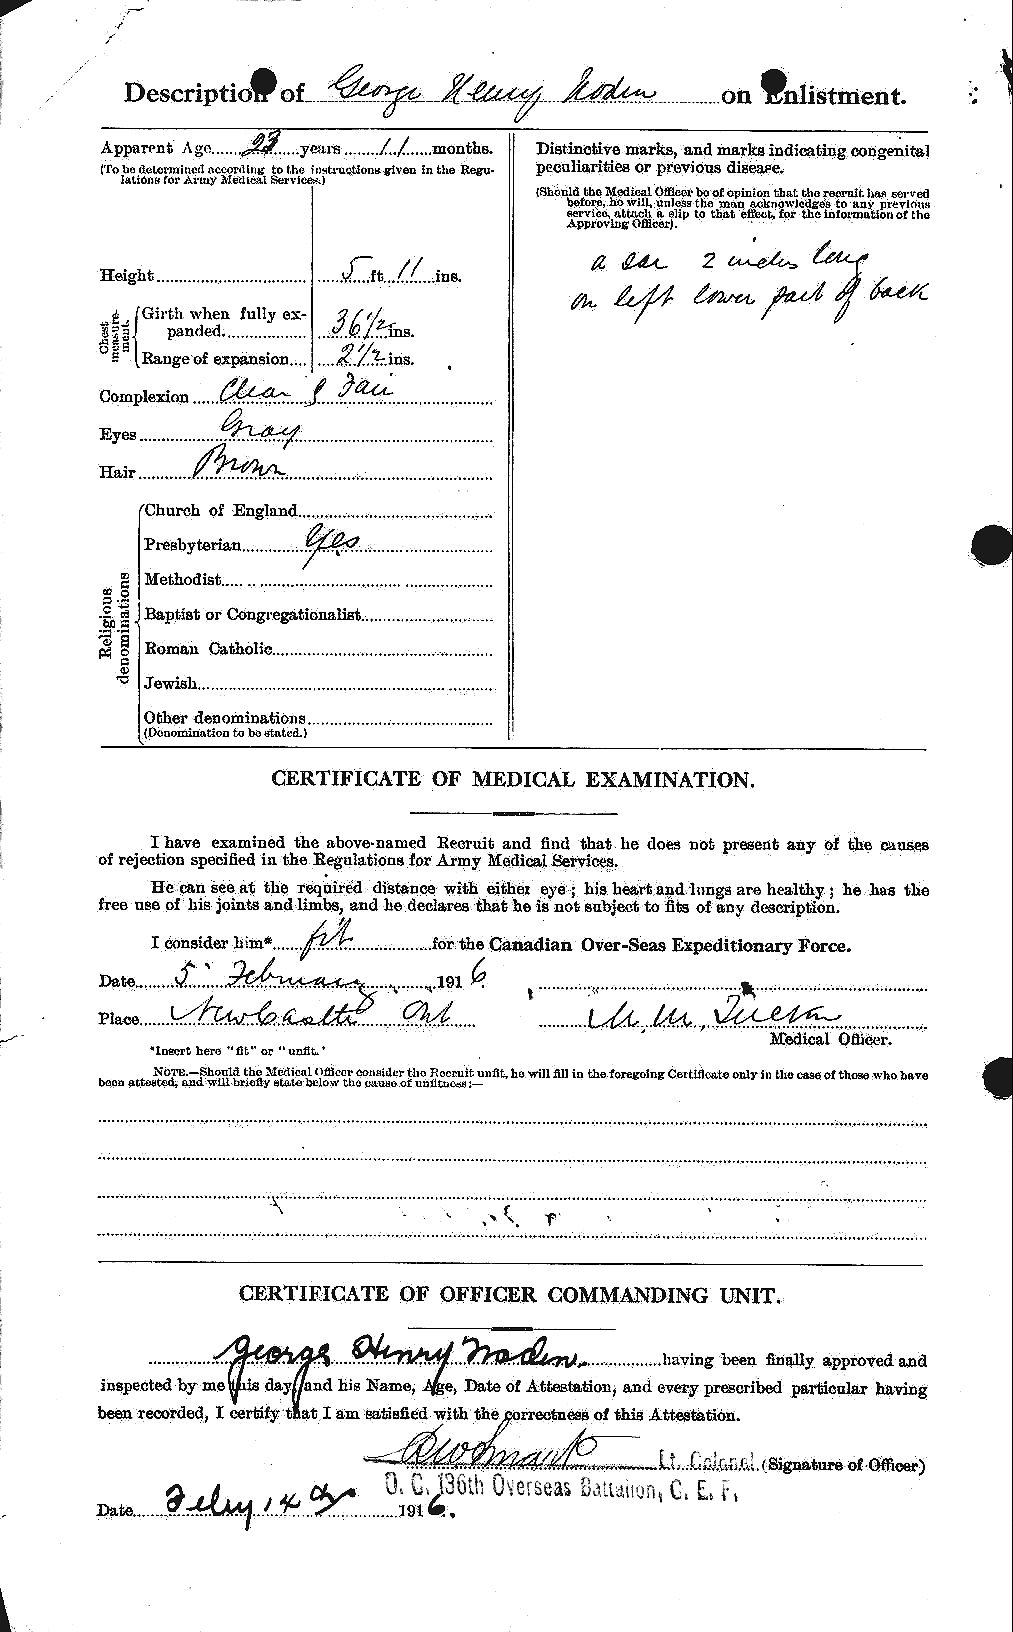 Description of George Henry Noden on Enlistment.
Apparent Age 23 years 11 months.
(To be determined according to the instructions given in the Regu-
lations for Army Medical Services.)
Height 5 ft. 11 ins.
Chest measurement.
Girth when fully ex-
panded 36 1/2 ins.
Range of expansion 2 1/2 ins.
Complexion Clear & Fair
Eyes Gray
Hair Brown
Religious denominations
Church of England
Presbyterian Yes
Methodist
Baptist or Congregationalist
Roman Catholic
Jewish
Other denominations
(Denomination to be stated.)
Distinctive marks, and marks indicating congenital
peculiarities or previous disease.
(Should the Medical Officer be of opinion that the recruit has served
before, he will, unless the man acknowledges to any previous
service, attach a slip to that effect, for the information of the
Approving Officer).
a scar 2 inches long
on left lower part of back
CERTIFICATE OF MEDICAL EXAMINATION.
I have examined the above-named Recruit and find that he does not present any of the causes
of rejection specified in the Regulations for Army Medical Services.
He can see at the required distance with either eye; his heart and lungs are healthy; he has the
free use of his joints and limbs, and he declares that he is not subject to fits of any description.
I consider him* fit for the Canadian Over-Seas Expeditionary Force.
Date 5 February 1916
Place NewCastle Ont
Medical Officer.
*Insert here "fit" or "unfit."
NOTE.—Should the Medical Officer consider the Recruit unfit, he will fill in the foregoing Certificate only in the case of those who have
been attested, and will briefly state below the cause of unfitness:—
CERTIFICATE OF OFFICER COMMANDING UNIT.
George Henry Noden having been finally approved and
inspected by me this day, and his Name, Age, Date of Attestation, and every prescribed particular having
been recorded, I certify that I am satisfied with the correctness of this Attestation.
Lt. Colonel (Signature of Officer)
O. C. 136th Overseas Battalion, C. E. F.
Date Feby 14 1916.